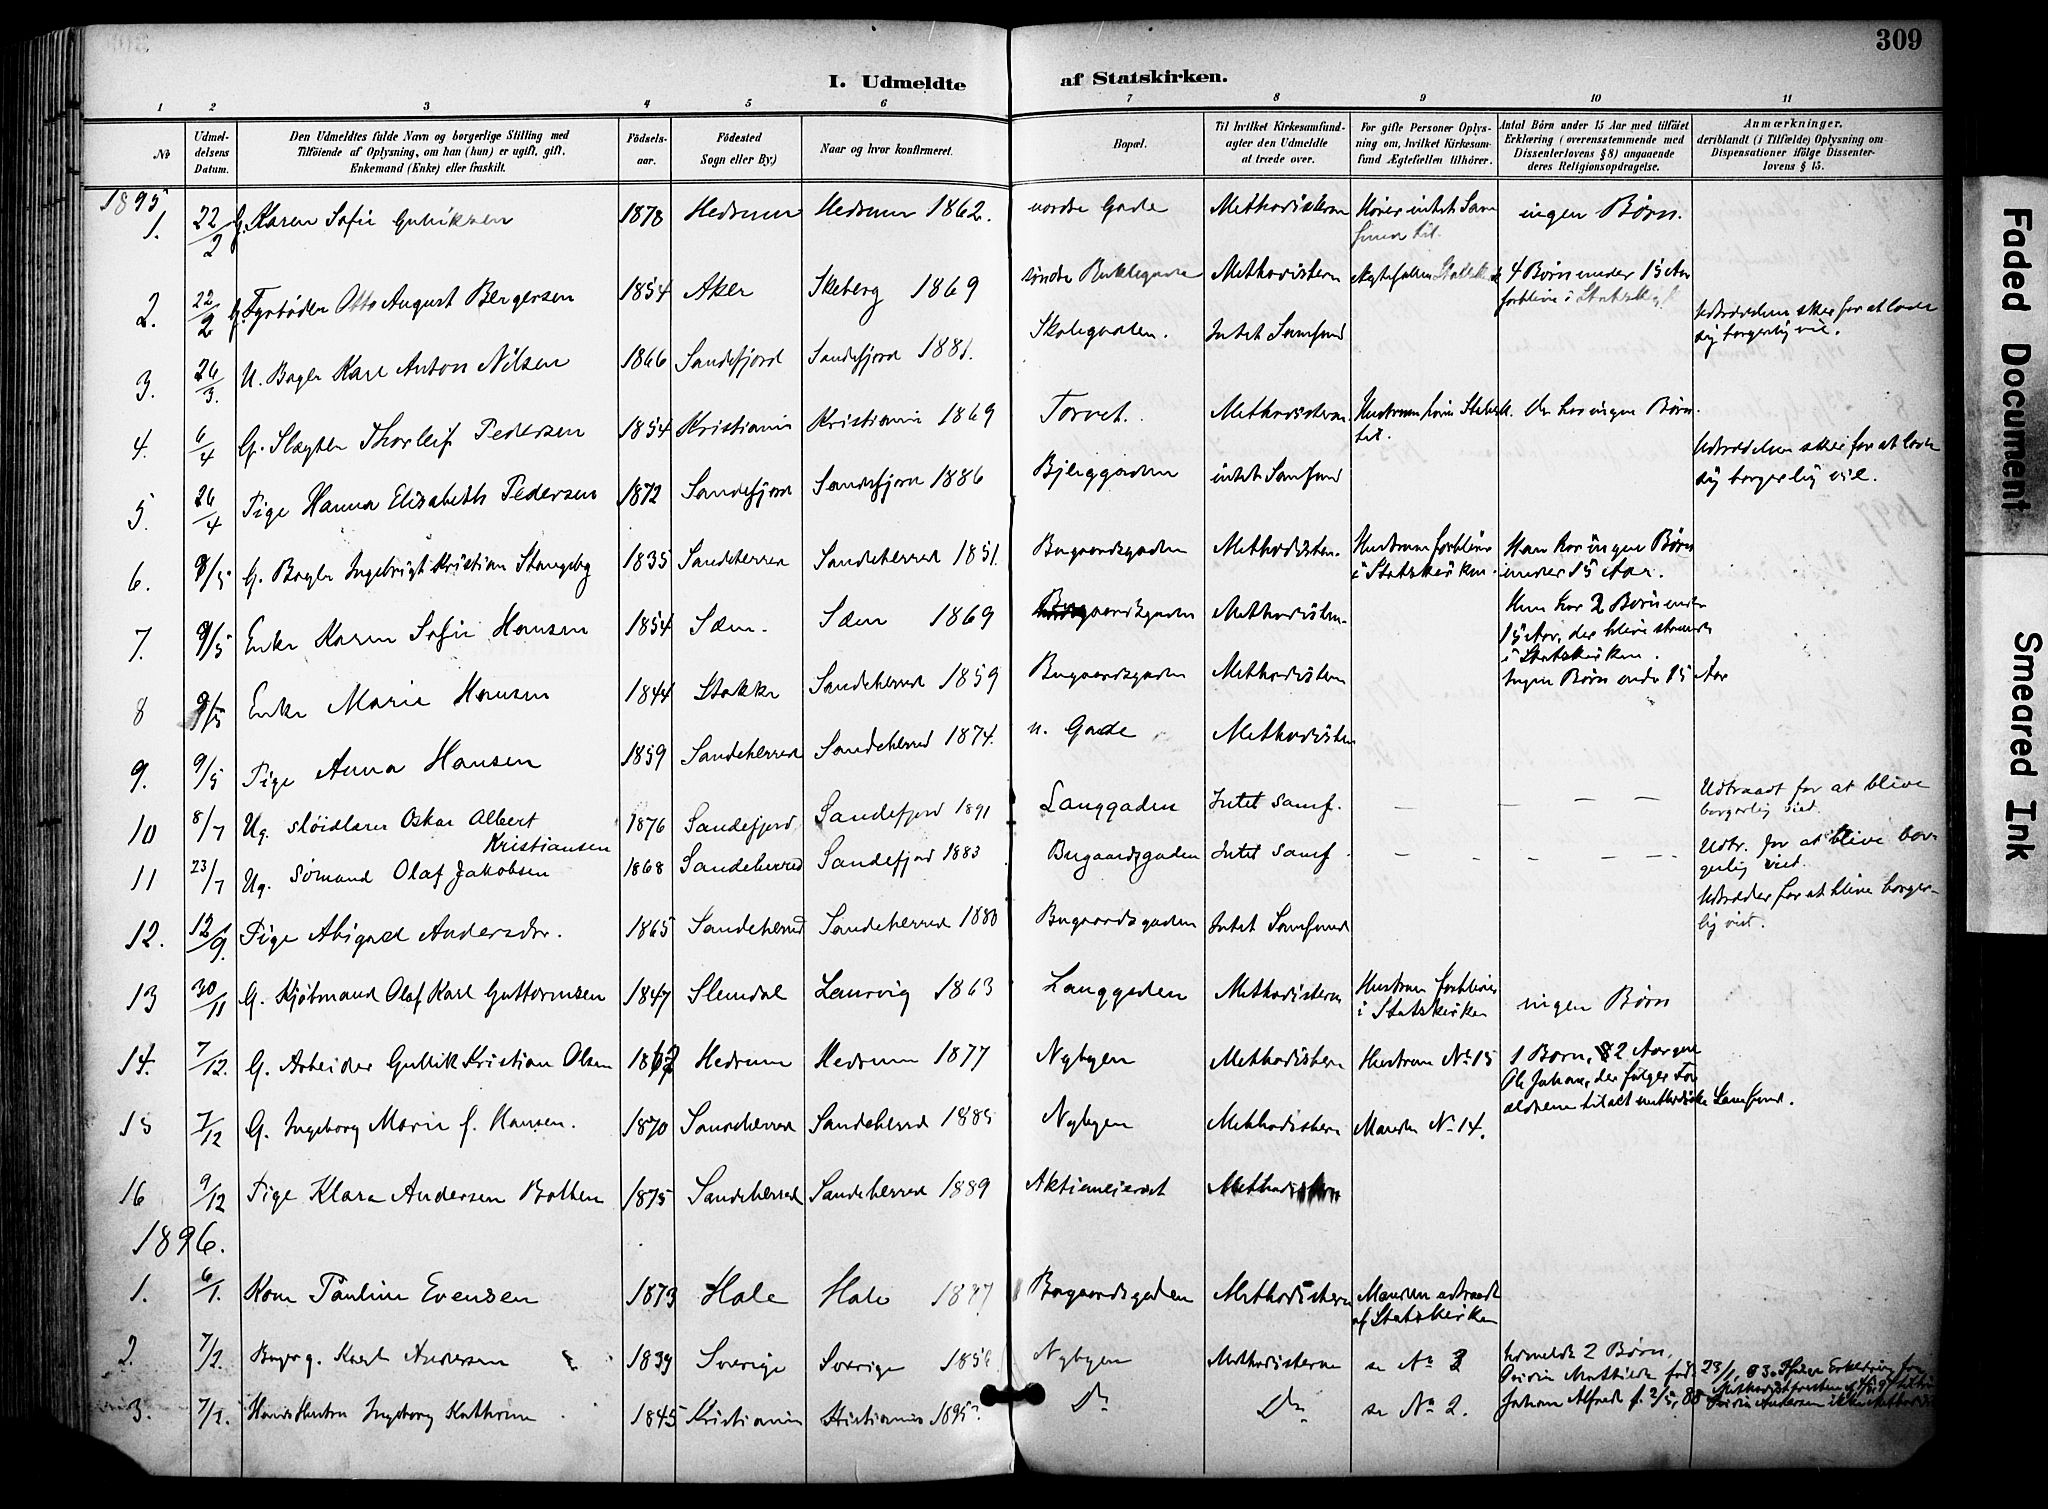 309
I. Udmeldte af Statskirken.
1 2 3 4 5 6 7 8 9 10 11
No
Udmel-
delsens
Datum.
Den Udmeldtes fulde Navn og borgerlige Stilling med
Tilføiende af Oplysning, om han (hun) er ugift, gift,
Enkemand (Enke) eller fraskilt.
Fødsels-
aar.
Fødested
Sogn eller By)
Naar og hvor konfirmeret.
Bopæl.
Til hvilket Kirkesamfund-
agter den Udmeldte
at træde over.
For gifte Personer Oplys-
ning om, hvilket Kirkesam-
fund Ægtefællen tilhører.
Antal Børn under 15 Aar med tilføiet
Erklæring (overensstemmende med
Dissenterlovens § 8) angaaende
deres Religionsopdragelse.
Anmærkninger,
deriblandt (i Tilfælde) Oplysning om
Dispensationer ifølge Dissenter-
lovens § 15.
1895
1. 22/2 G. Karen Sofie Gulliksen 1878 Hedrum Hedrum 1862. nordre Gade Methodisterne Hører intet Sam
fund til. ingen Børn.
2. 22/2 G. Fyrbøder Otto August Bergersen 1854 Aker Skeberg 1869 søndre Methodistern Ægtefællen 4 Børn under 15 Aar
forblive i
3. 26/3. U. Bager Karl Anton Nilsen 1866 Sandefjord Sandefjord 1881. Skolegaden. Intet Samfund Udtrædelsen sker for at lade
sig borgerlig vie.
4. 6/4 G. Slagter Thorleif Pedersen 1854 Kristiania Kristiania 1869 Torvet. Methodistern Hustruen hører Statsk.
til. Der har ingen Børn.
5. 26/4 Pige Hanna Elisabeth Pedersen 1872 Sandefjord Sandefjord 1886 Bjerggaden intet Samfund Udtrædelsen sker for at lade
sig borgerlig vie.
6. 9/5 G. Bager Ingebrigt Kristian Stangeby 1835 Sandeherred Sandeherred 1851. Bugaardsgaden Methodisten. Hustruen forblive
i Statskirken. Han har ingen Børn
under 15 Aar.
7. 9/5 Enke Karen Sofie Hansen 1854 Sæm. Sæm 1869 Bugaardsgaden Methodisten. Hun har 2 Børn under
15 Aar, der blive staaende
i Statskirken.
8 9/5 Enke Marie Hansen 1844 Stokke Sandeherred 1859 Bugaardsgaden Methodistern Ingen Børn under 15 Aar
9. 9/5 Pige Anna Hansen 1859 Sandeherred Sandeherred 1874. n. Gade Methodisten
10 8/7 Ug. sløidlærer Oskar Albert
Kristiansen 1876 Sandefjord Sandefjord 1891 Langgaden Intet samf. — — — — Udtraadt for at blive
borgerlig viet.
11 23/7 Ug. sømand Olaf Jakobsen 1868 Sandeherred Sandefjord 1883 Bugaardsgaden Intet samf. — — — — Udtr. for at blive bor-
gerlig viet.
12. 12/9. Pige Abigael Andersdr. 1865 Sandeherred Sandeherred 1880 Bugaardsgaden Intet Samfund Udtræder for at blive borger-
lig viet.
13 30/11 G. Kjøbmand Olaf Karl Guttormsen 1847 Slemdal Laurvig 1863 Langgaden Methodisterne Hustruen forblive
i Statskirken ingen Børn
14. 7/12. G. Arbeider Gullik Kristian Olsen 1862 Hedrum Hedrum 1877 Nybyen Methodistern Hustrue No 15 1 Barn, 2 Aar gml
Ole Johan, der følger For
ældrene til det methodiske Samfund.
15 7/12 G. Ingeborg Marie f. Hansen. 1870 Sandeherred Sandeherred 1885 Nybyen Methodistern Manden No 14.
16 9/12 Pige Klara Andersen Bollen 1875 Sandeherred Sandeherred 1889 Aktiemeieriet Methodistern
1896.
1. 6/1. Kone Pauline Evensen 1873 Hole Hole 1887 Bugaardsgaden Methodistern Manden udtraadt
af Statskirken
2. 7/2. Bager g. Karl Andersen 1839 Sverige Sverige Nybyen Methodisterne se No 3 Udmeldt 2 Børn,
Mathilde fød. 23/1, 83.
3. 7/2. Hans Hustru Ingeborg Kathrine 1845 Kristiania Kristiania Do Do se No 2. Johan Alfred f. 2/5, 88
Faded Document
Smeared Ink